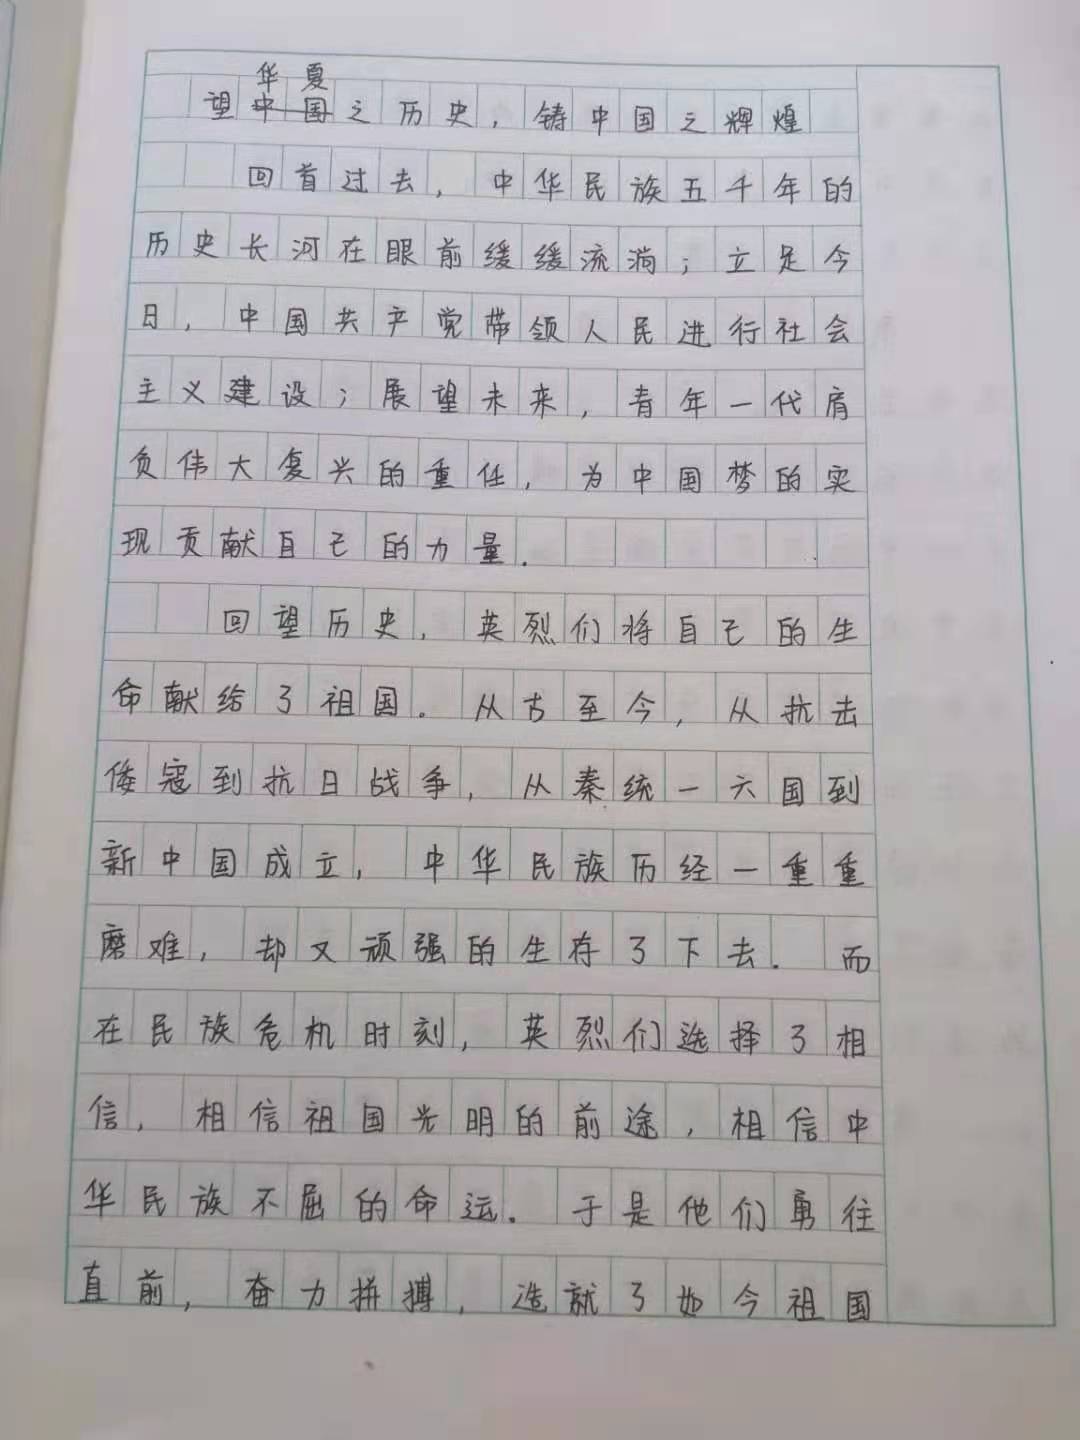 华夏
望中国之历史，铸中国之辉煌
回首过去，中华民族五千年的
历史长河在眼前缓缓流淌；立足今
日，中国共产党带领人民进行社会
主义建设；展望未来，青年一代肩
负伟大复兴的重任，为中国梦的实
现贡献自己的力量.
回望历史，英烈们将自己的生
命献给了祖国。从古至今，从抗击
倭寇到抗日战争，从秦统一六国到
新中国成立，中华民族历经一重重
磨难，却又顽强的生存了下去.而
在民族危机时刻，英烈们选择了相
信，相信祖国光明的前途，相信中
华民族不屈的命运.于是他们勇往
直前，奋力拼搏，造就了如今祖国